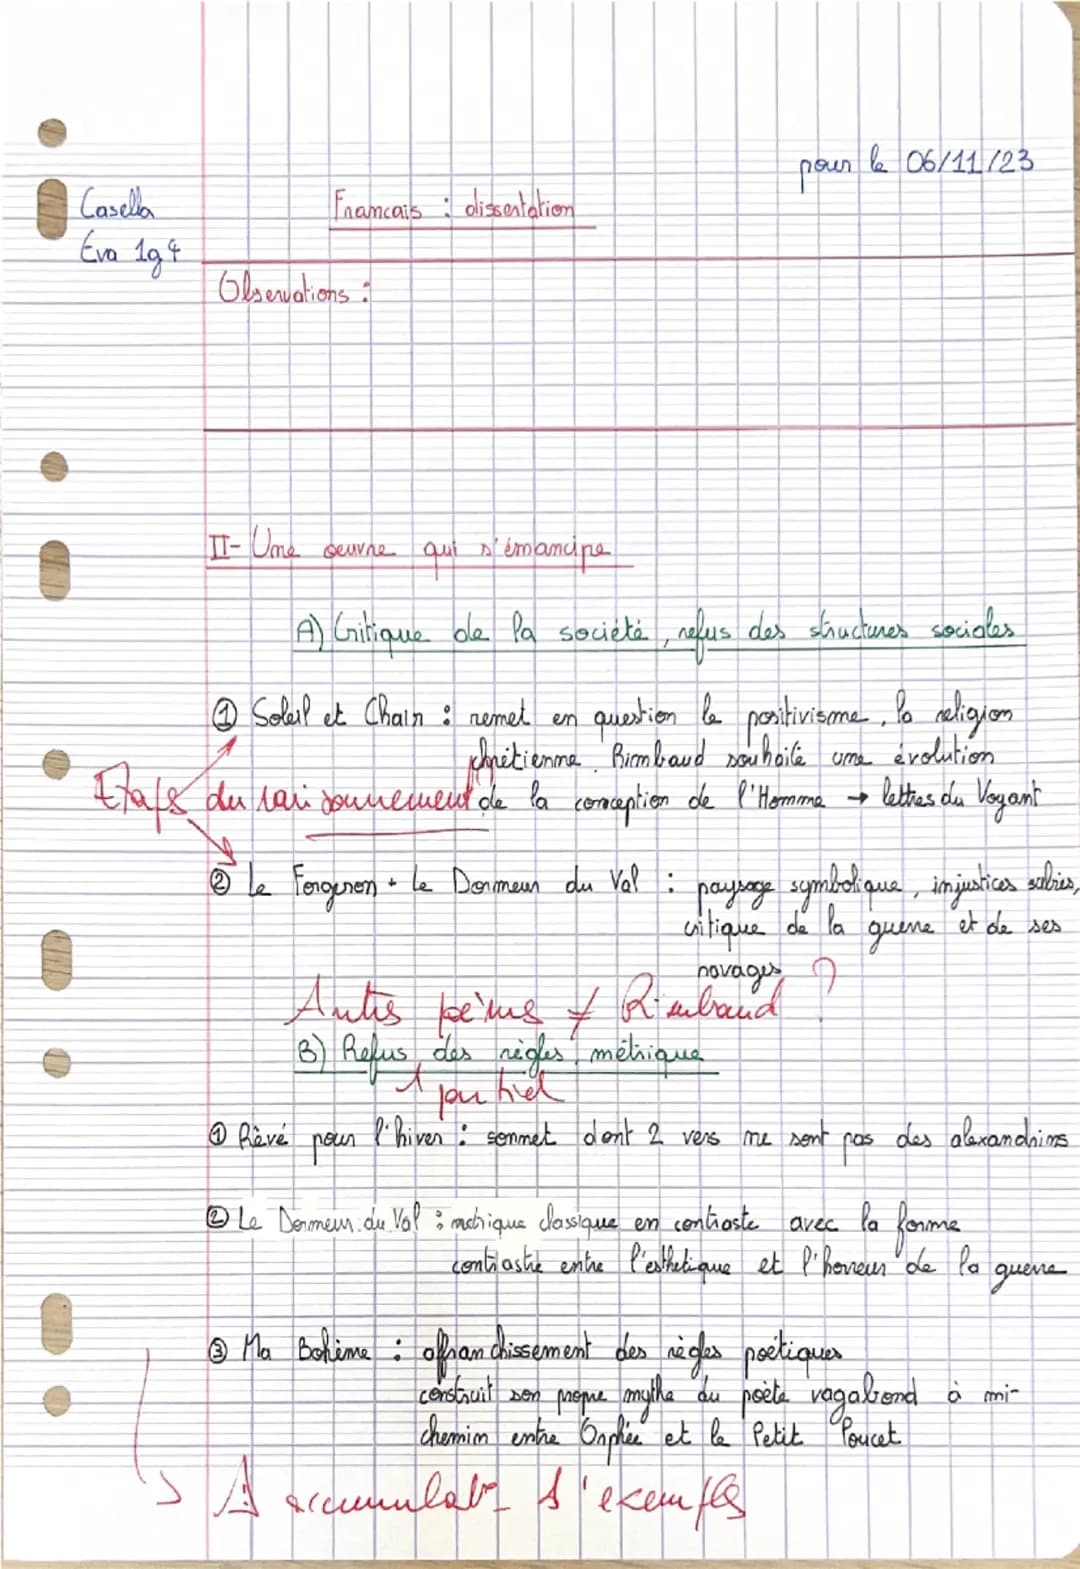 pour le 06/11/23
Casella
Eva 1g4
Francais : dissertation
Observations :
II- Une oeuvre qui s'émancipe
A) Critique de la société, refus des structures sociales
① Soleil et Chair : remet en question le positivisme, la religion
chrétienne. Rimbaud souhaite une évolution
Etapes du raisonnement
de la conception de l'Homme → lettres du Voyant
② Le Forgeron + Le Dormeur du Val : paysage symbolique, injustices subies,
critique de la guerre et de ses
ravages
Autres poèmes ≠ Rimbaud ?
B) Refus des règles métrique
↑ partiel
① Rêvé pour l'hiver : sonnet dont 2 vers ne sont pas des alexandrins
② Le Dormeur du Val : métrique classique en contraste avec la forme
contraste entre l'esthétique et l'horreur de la guerre
③ Ma Bohème : affranchissement des règles poétiques
construit son propre mythe du poète vagabond à mi-
chemin entre Orphée et le Petit Poucet
⚠ accumulat° d'exemples